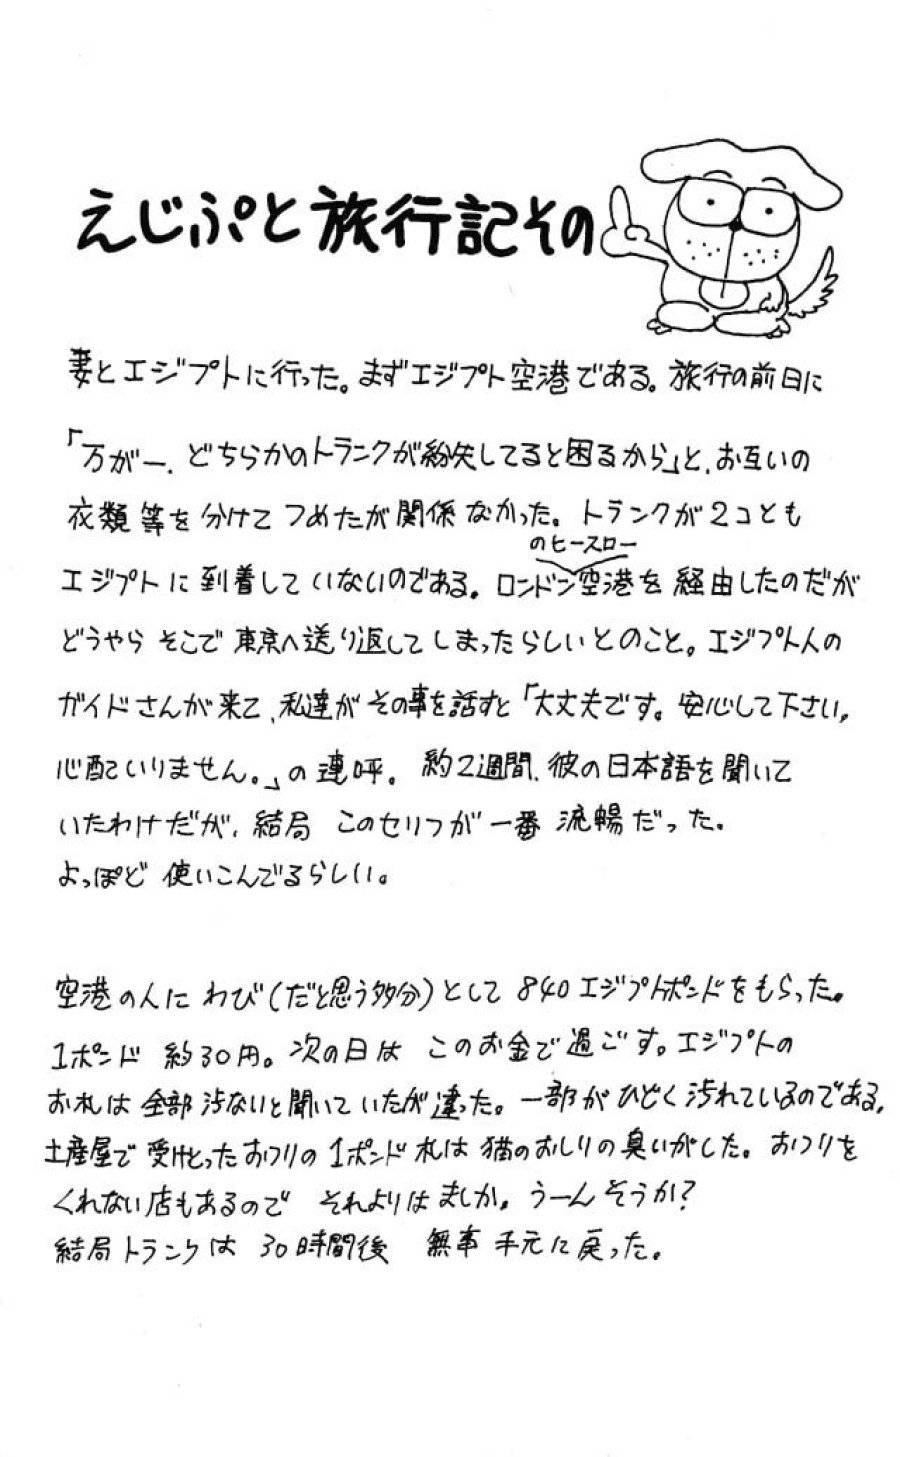 えじぷと旅行記その
妻とエジプトに行った。まずエジプト空港である。旅行の前日に
「万が一、どちらかのトランクが紛失してると困るから」と、お互いの
衣類等を分けてつめたが関係なかった。トランクが2コとも
のヒースロー
エジプトに到着していないのである。ロンドン空港を経由したのだが
どうやらそこで東京へ送り返してしまったらしいとのこと。エジプト人の
ガイドさんが来て、私達がその事を話すと「大丈夫です。安心して下さい。
心配いりません。」の連呼。約2週間、彼の日本語を聞いて
いたわけだが、結局 このセリフが一番 流暢だった。
よっぽど 使いこんでるらしい。
空港の人に わび(だと思う多分)として 840エジプトポンドをもらった。
1ポンド 約30円。次の日は このお金で過ごす。エジプトの
お札は 全部 汚ないと聞いていたが違った。一部がひどく汚れているのである。
土産屋で受けとったおつりの1ポンド札は猫のおしりの臭いがした。おつりを
くれない店もあるので それよりはましか。うーんそうか?
結局トランクは 30時間後 無事 手元に戻った。